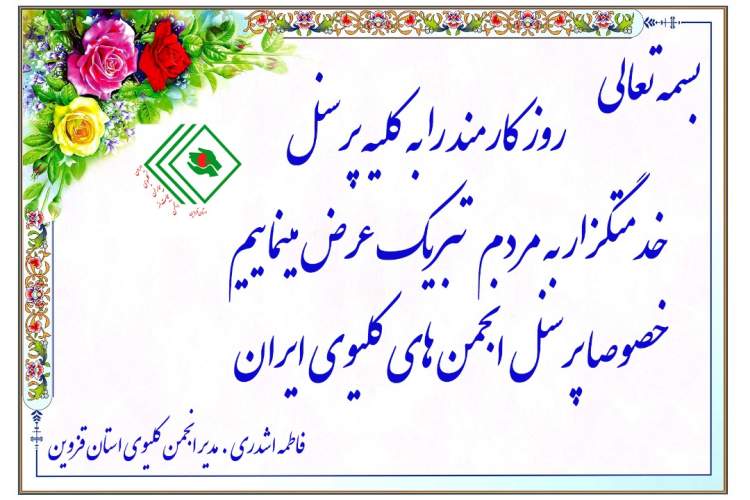 بسمه تعالی
روز کارمند را به کلیه پرسنل
خدمتگزار به مردم تبریک عرض مینماییم
خصوصا پرسنل انجمن های کلیوی ایران
فاطمه اشدری . مدیر انجمن کلیوی استان قزوین